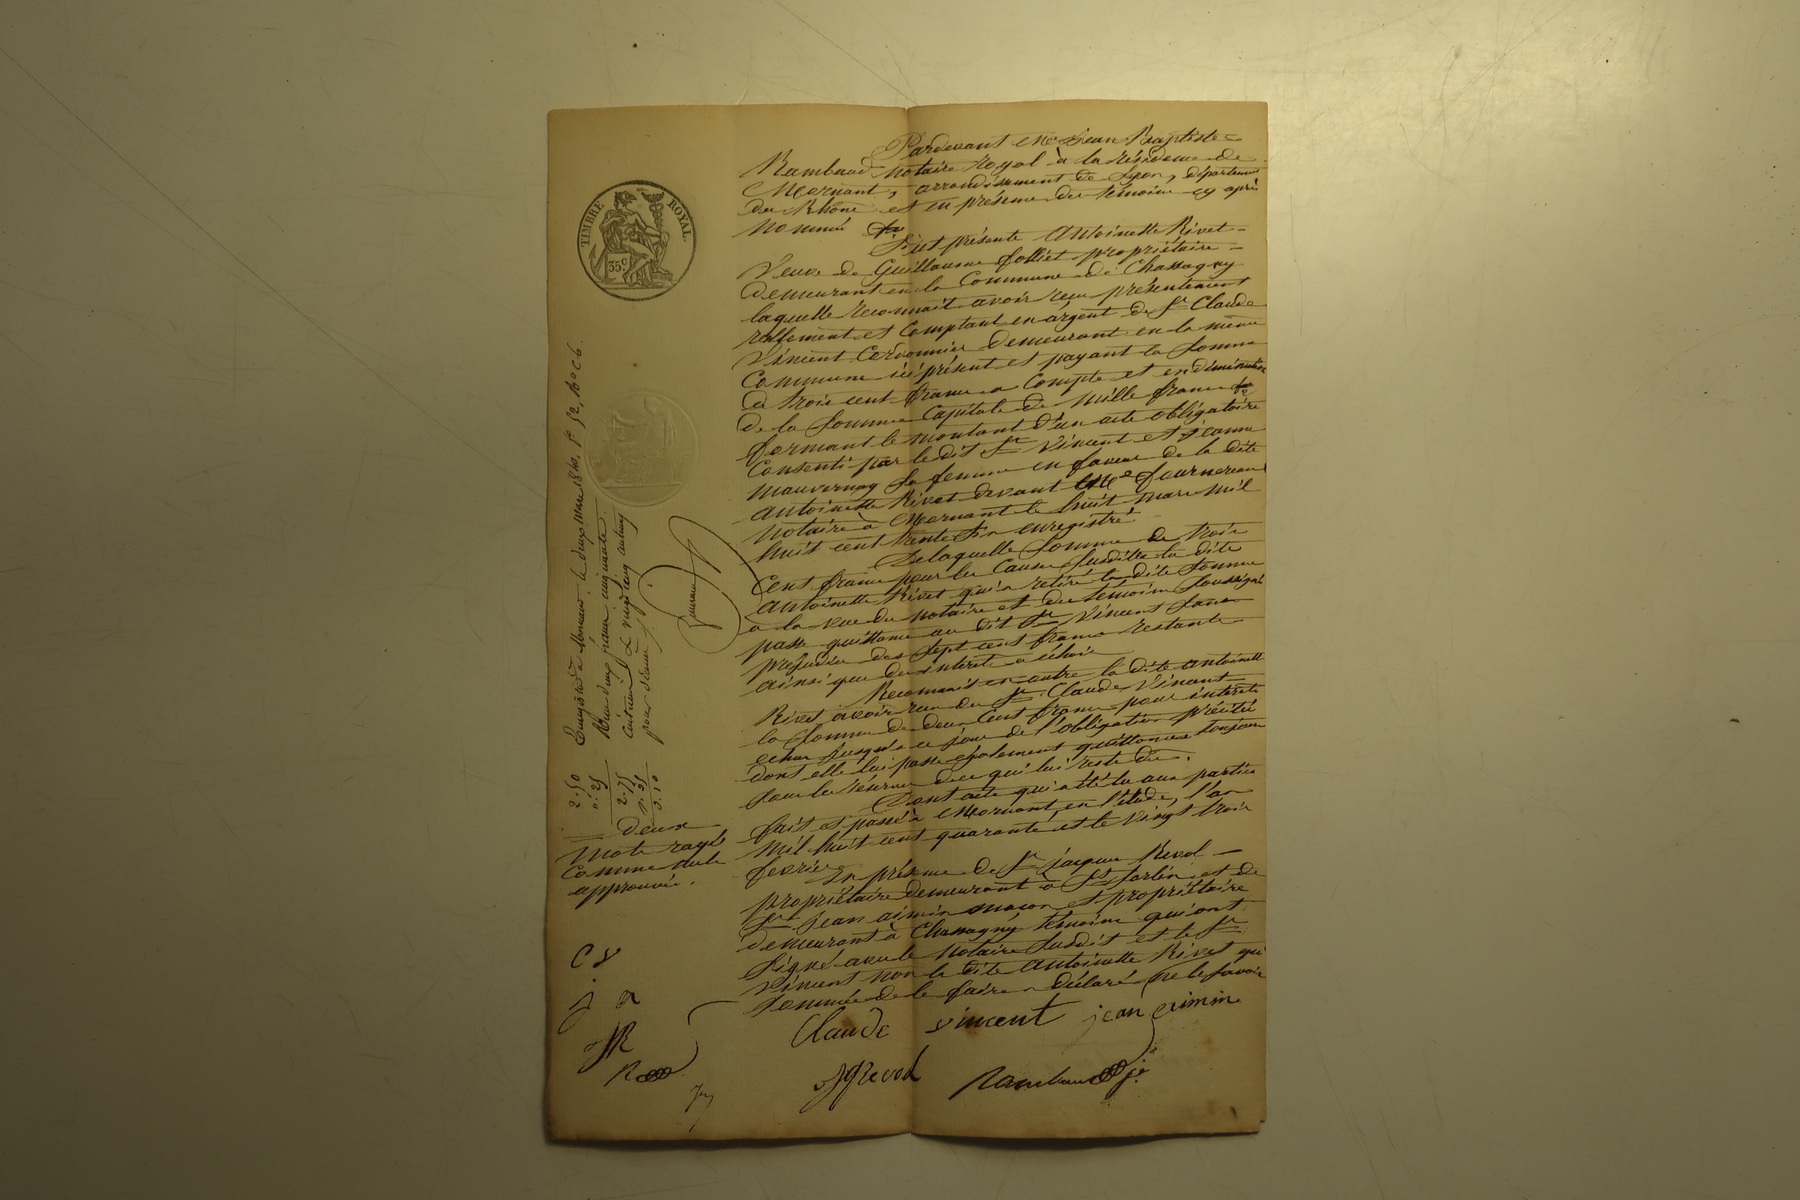 TIMBRE ROYAL.
35c
Pardevant Me Jean Baptiste
Rambaud Notaire Royal à la résidence de
Mornant, arrondissement de Lyon, département
du Rhône et en présence des témoins cy après
nommés
Fut présente Antoinette Rivet
Veuve de Guillaume propriétaire
demeurant en la Commune de Chassagny
laquelle reconnait avoir reçu présentement
réellement et Comptant en argent de Sr Claude
Vincent Cordonnier demeurant en la même
Commune ici présent et payant la Somme
de trois cent francs a Compte et en diminution
de la Somme Capitale de Mille francs
formant le montant d'un acte obligatoire
Consenti par le dit Sr Vincent et Jeanne
mauvernay Sa femme en faveur de la dite
antoinette Rivet devant Me
Notaire à Mornant le huit mars Mil
huit cent trente Six enregistré
De laquelle Somme de trois
Cent francs pour les Causes Susdites la dite
Antoinette Rivet qui a retiré la dite Somme
a la vue du Notaire et des témoins Soussignés
passe quittance au dit Sr Vincent Sans
préjudice des Sept cent francs restants
ainsi que des intérêts a échoir
Reconnait en outre la dite antoinette
Rivet avoir reçu du Sr Claude Vincent
la Somme de deux Cent francs pour intérêts
échus jusqu'à ce jour de l'obligation précitée
dont elle lui passe également quittance toujours
Sous la réserve de ce qui lui reste dû.
Dont acte qui a été lu aux parties
fait et passé a Mornant en l'étude, l'an
Mil huit cent quarante et le Vingt trois
février
En présence de Sr jacques Revol
propriétaire demeurant à St Sorlin et de
Sr jean aimin maçon et propriétaire
demeurant à Chassagny témoins qui ont
Signé avec le Notaire Susdit et le Sr
Vincent non la dite antoinette Rivet qui
Sommée de le faire a déclaré ne le Savoir
Claude vincent jean
Revol
Rambaud
Enregistré à Mornant le deux Mars 1840, fo 52, Ro C 6.
Reçu deux francs cinquante
centimes
pour décime
2.50
0.25
2.75
deux
Mots rayés
Comme nuls
approuvés.
C V
j a
JR
R